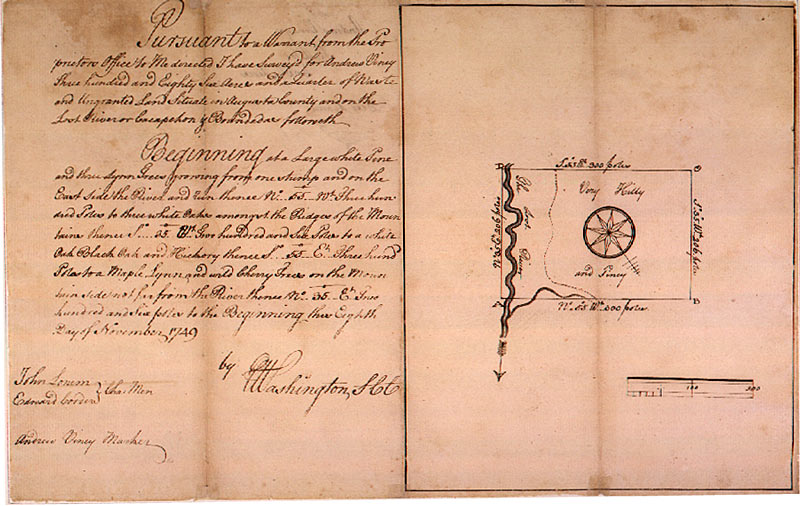 Pursuant to a Warrant from the Pro
prietors Office to Me directed I have Survey'd for Andrew Viney
Three hundred and Eighty Six Acres and a Quarter of Waste
and Ungranted Land Situate in Augusta County and on the
Lost River or Cacapehon & Bounded as followeth
Beginning at a Large white Pine
and three Lynn Trees growing from one stump and on the
East Side the River and run thence No. 55 Wt. Three hun
dred Poles to three white Oaks amongst the Ridges of the Moun
tains thence So. 35 Wt. Two hundred and Six Poles to a white
Oak Black Oak and Hickory thence So. 55 Et. Three hund
Poles to a Maple Lynn and wild Cherry Trees on the Moun
tain Side not far from the River thence No. 35 Et. Two
hundred and Six poles to the Beginning this Eighth
Day of November 1749
by GWashington S.C.C
John Lonem
Edward Corder } Cha: Men
Andrew Viney Marker
300 poles
Very Hilly
The Lost River
No. 35 Et. 206 poles
So. 35 Wt. 206 poles
and Piney
No. 55 Wt. 300 poles
100
300